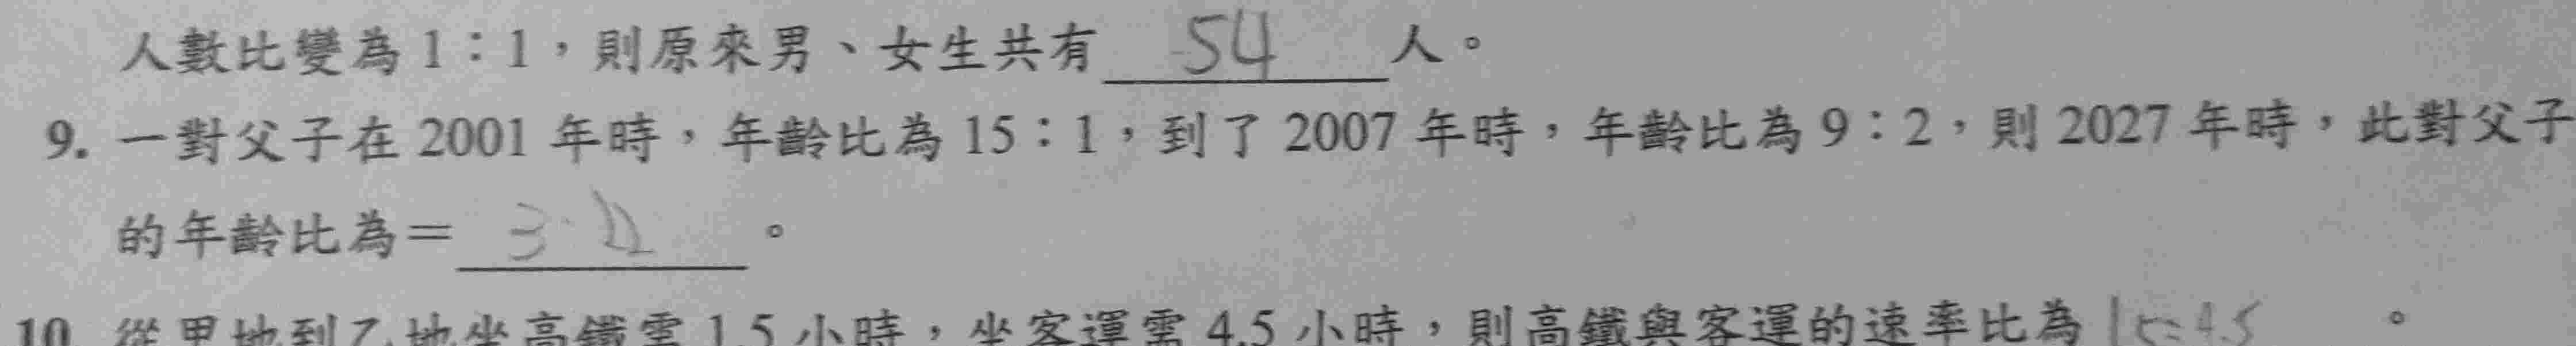 人數比變為 1：1，則原來男、女生共有 54 人。
9. 一對父子在 2001 年時，年齡比為 15：1，到了 2007 年時，年齡比為 9：2，則 2027 年時，此對父子
的年齡比為＝ 。
10. 從甲地到乙地坐高鐵需 1.5 小時，坐客運需 4.5 小時，則高鐵與客運的速率比為 。